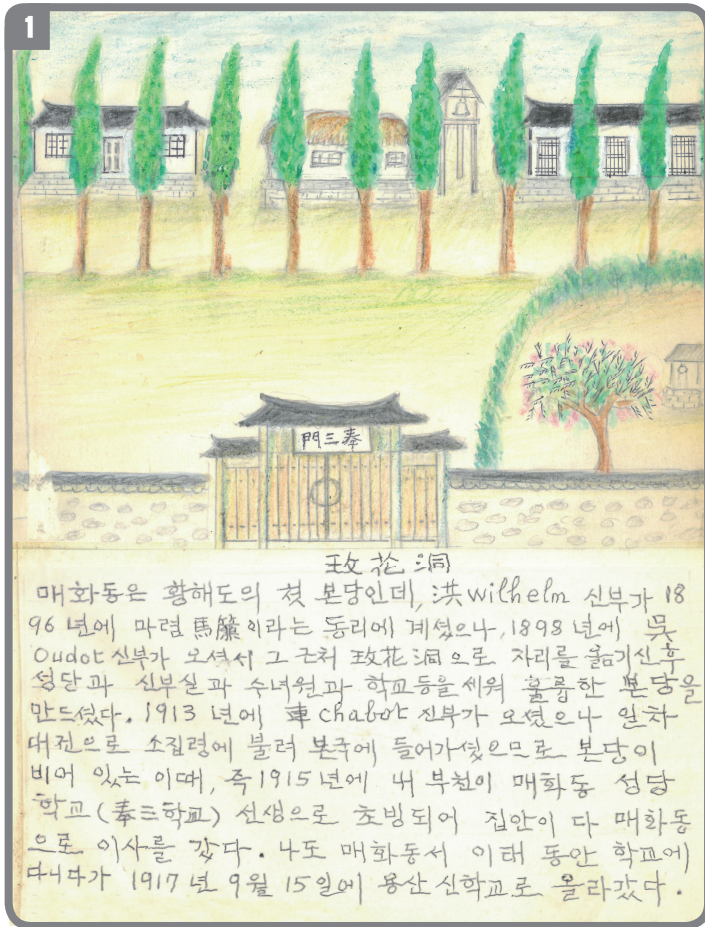 1
奉三門
玫花洞
매화동은 황해도의 쳣 본당인데, 洪 wilhelm 신부가 18
96 년에 마렴 馬簾이라는 동리에 계셨으나, 1898 년에 吳
Oudot 신부가 오셔서 그 근처 玫花洞으로 자리를 옮기신 후
성당과 신부실과 수녀원과 학교등을 세워 훌륭한 본당을
만드셨다. 1913 년에 車 chabot 신부가 오셨으나 일차
대전으로 소집령에 불려 본국에 들어가셨으므로 본당이
비어 있는 이때, 즉 1915 년에 내 부친이 매화동 성당
학교(奉三학교) 선생으로 초빙되어 집안이 다 매화동
으로 이사를 갔다. 나도 매화동서 이태 동안 학교에
다니다가 1917 년 9월 15일에 용산 신학교로 올라갔다.